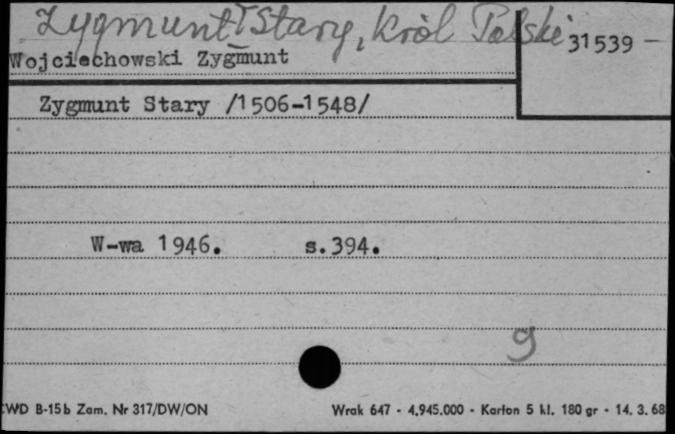 Zygmunt I Stary, Król Polski
31539 —
Wojciechowski Zygmunt
Zygmunt Stary /1506-1548/
W-wa 1946. s.394.
9
CWD B-15b Zam. Nr 317/DW/ON Wrak 647 - 4.945.000 - Karton 5 kl. 180 gr - 14. 3. 68